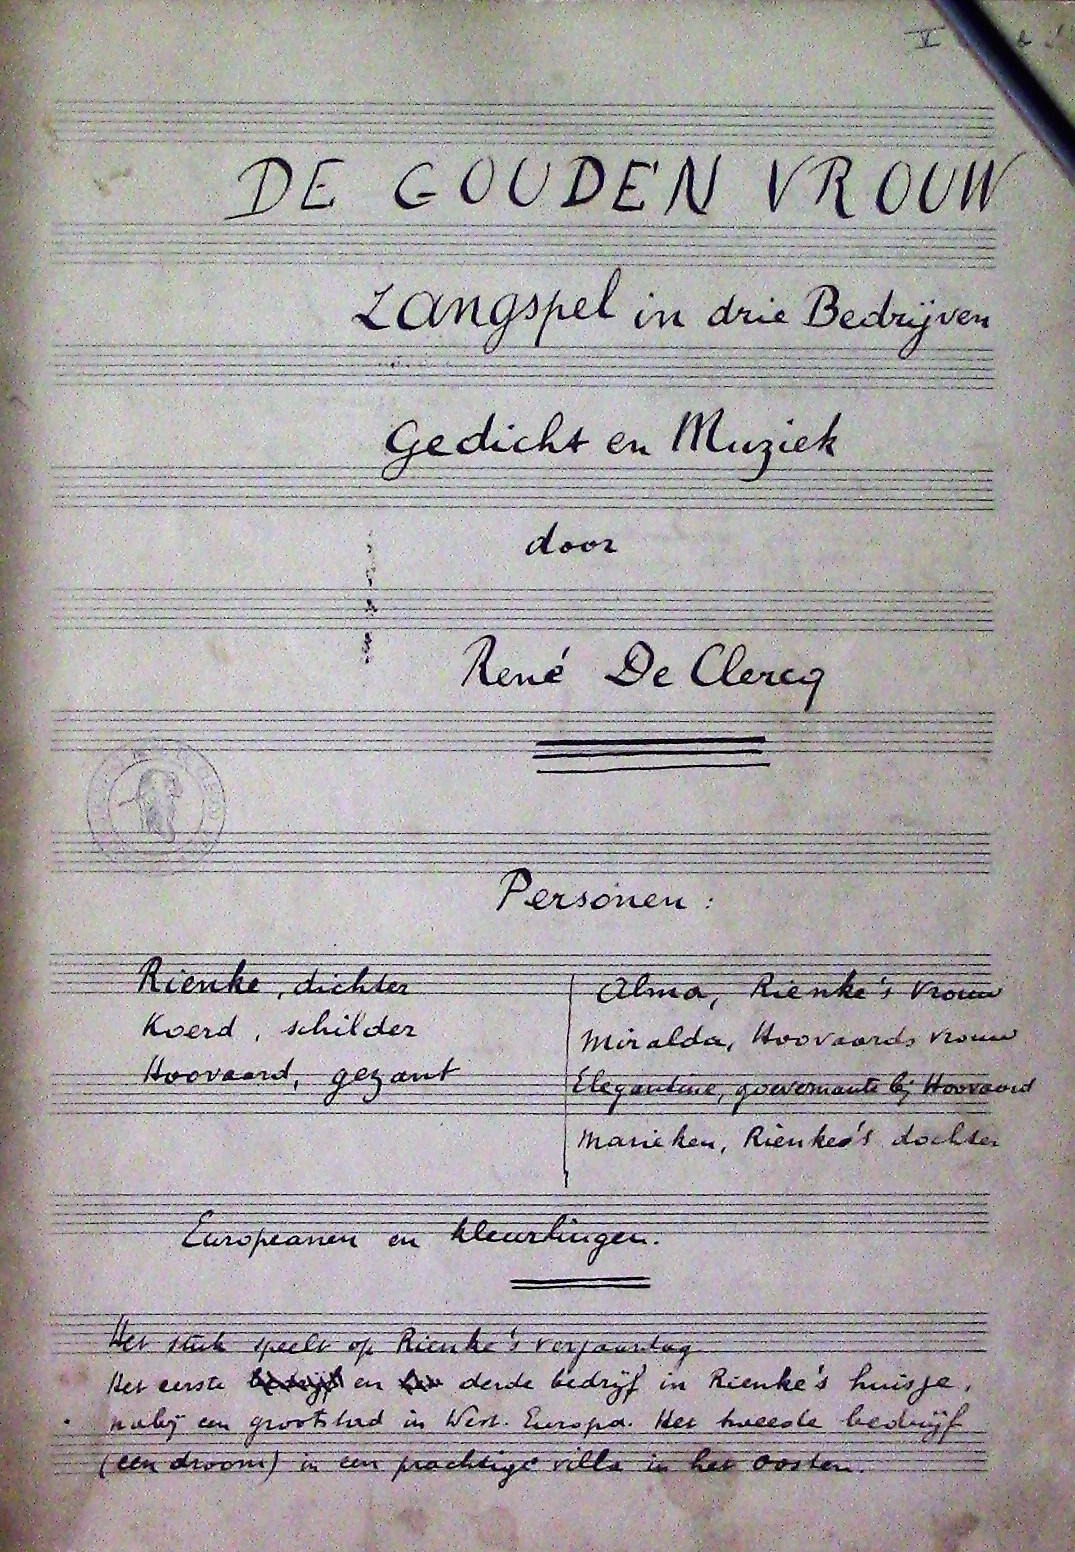 V
DE GOUDEN VROUW
Zangspel in drie Bedrijven
Gedicht en Muziek
door
René De Clercq
Personen:
Rienke, dichter
Koerd, schilder
Hoovaard, gezant
Alma, Rienke's vrouw
Miralda, Hoovaards vrouw
Élegantine, goevernante bij Hoovaard
Marieken, Rienke's dochter
Europeanen en kleurlingen.
Het stuk speelt op Rienke's verjaardag
Het eerste bedrijf en derde bedrijf in Rienke's huisje,
nabij een grootstad in West-Europa. Het tweede bedrijf
(een droom) in een prachtige villa in het Oosten.